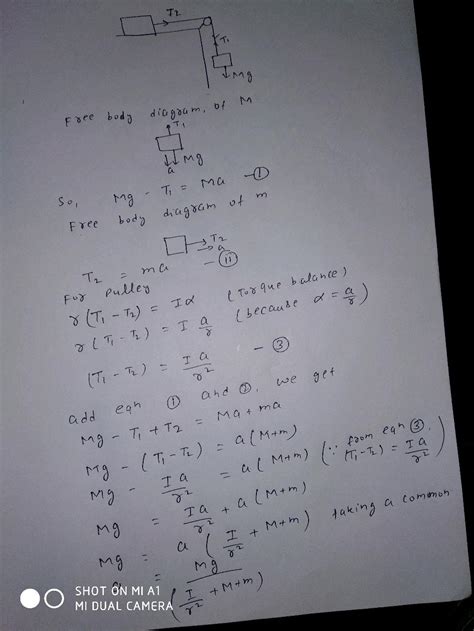 T2
T1
Mg
Free body diagram, of M
T1
Mg
a
So, Mg - T1 = Ma - ①
Free body diagram of m
T2
a
T2 = ma - ⑪
For Pulley
r(T1 - T2) = Iα (Torque balance)
r(T1 - T2) = I a/r (because α = a/r)
(T1 - T2) = Ia/r² - ③
add eqn ① and ②, we get
Mg - T1 + T2 = Ma + ma
Mg - (T1 - T2) = a(M+m)
Mg - Ia/r² = a(M+m) (∵ from eqn ③, (T1 - T2) = Ia/r²)
Mg = Ia/r² + a(M+m)
Mg = a(I/r² + M+m) taking a common
a = Mg/(I/r² + M+m)
SHOT ON MI A1
MI DUAL CAMERA